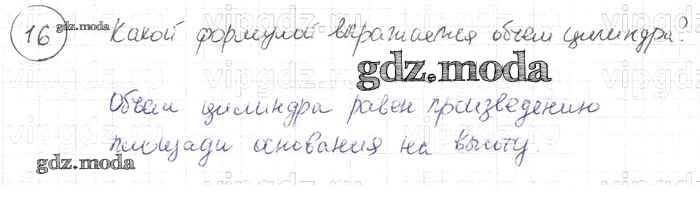 16 Какой формулой выражается объем цилиндра?
gdz.moda
gdz.moda
Объем цилиндра равен произведению
площади основания на высоту.
gdz.moda